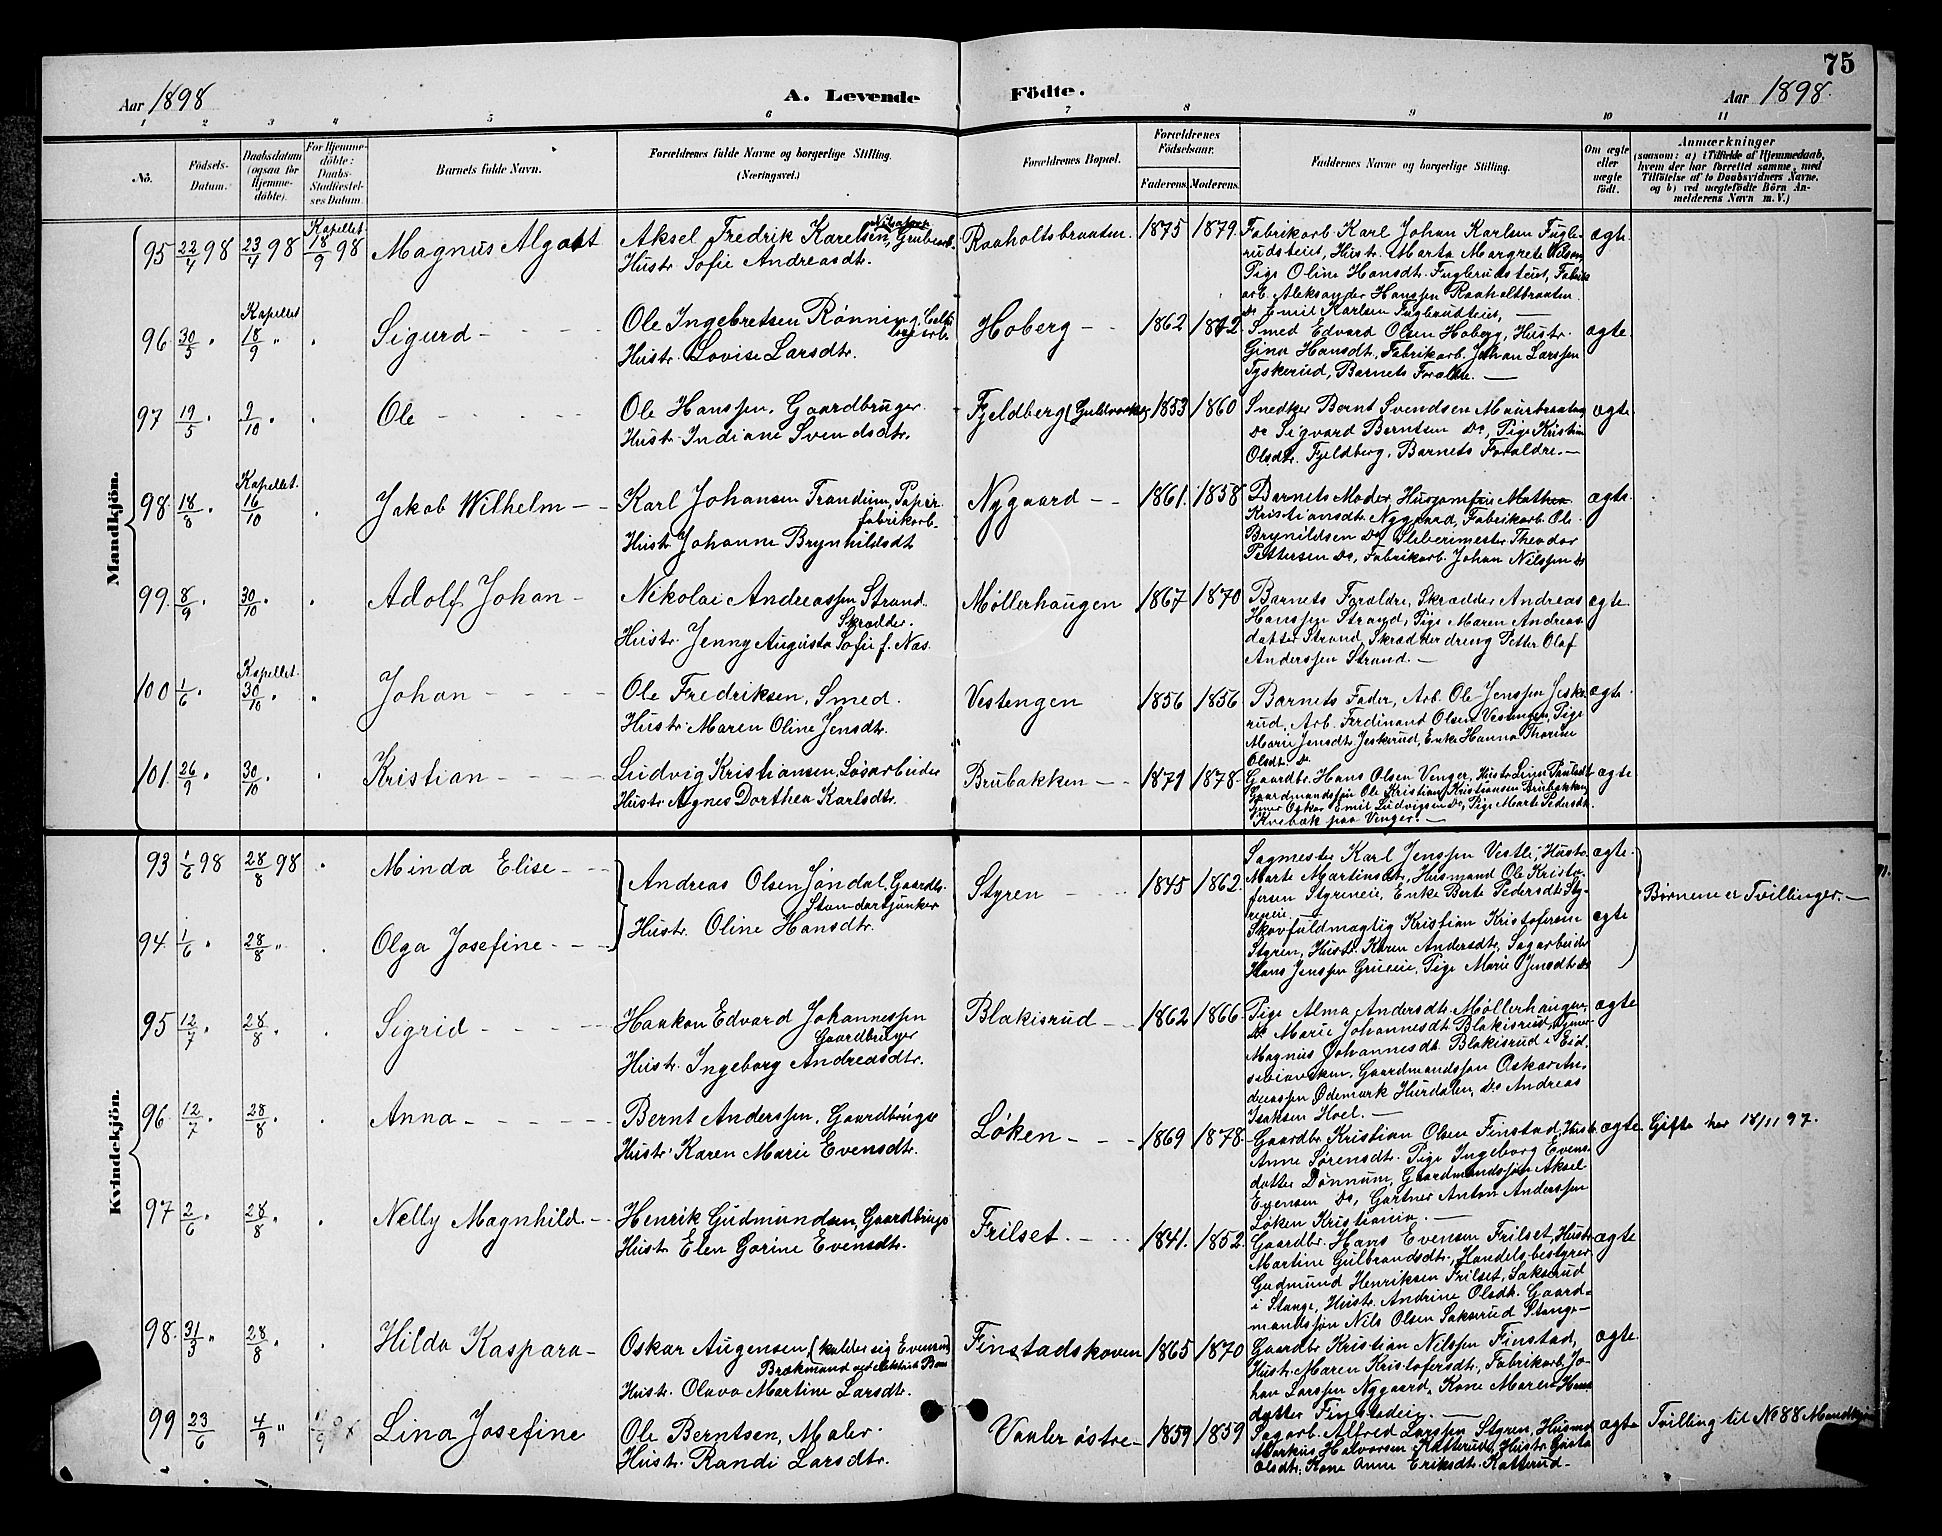 75
Aar 1898
A. Levende Födte.
Aar 1898.
1 2 3 4 5 6 7 8 9 10 11
No.
Födsels-Datum.
Daabsdatum (ogsaa för Hjemme-döbte).
For Hjemme-döbte: Daabs-Stadfæstel-ses Datum.
Barnets fulde Navn.
Forældrenes fulde Navne og borgerlige Stilling.
(Næringsvei.)
Forældrenes Bopæl.
Forældrenes Födselsaar.
Faderens. Moderens.
Faddernes Navne og borgerlige Stilling.
Om ægte eller uægte födt.
Anmærkninger
(saasom: a) i Tilfælde af Hjemmedaab,
hvem der har forrettet samme, med
Tilföielse af to Daabsvidners Navne,
og b) ved uægtefödte Börn An-
melderens Navn m. V.)
Mandkjön.
95 22/4 98 23/4 98 Kapellet 18/9 98 Magnus Algott
Aksel Fredrik Karelsen, Grubearb.
Hustr. Sofie Andreasdtr.
Raaholtsbraaten 1875 1879
Fabrikarb Karl Johan Karlsen Fugle-
rudsteiet, Hustr. Marta Margrete Nilsen
Pige Oline Hansdt. Fuglerudsteiet, Fabrik
arb. Aleksander Hanssen Raaholtbraaten
Do Emil Karlsen Fuglerudteiet, —
ægte.
96 30/5 " Kapellet 18/9 " Sigurd
Ole Ingebretsen Rønning,
Hustr. Lovise Larsdtr.
Hoberg 1862 1872
Smed Edvard Olsen Hoberg, Hustr.
Gina Hansdt., Fabrikarb. Johan Larssen
Tyskerud, Barnets Forældre. —
ægte.
97 19/5 " 9/10 " Ole
Ole Hanssen, Gaardbruger.
Hustr. Indiane Svendsdtr.
Fjeldberg (Guldverket) 1853 1860
Snedker Bernt Svendsen Maurbraaten
Do Sigvard Berntsen Do, Pige Kristin
Olsdtr. Fjeldberg, Barnets Forældre. —
ægte.
98. 18/8 " Kapellet. 16/10 Jakob Wilhelm
Karl Johansen Trandum, Papir
fabrikarb.
Hustr Johanne Brynhildsdt
Nygaard 1861. 1858
Barnets Moder, Husjomfru Mathea
Kristiansdtr Nygaard, Fabrikarb. Ole
Brynildsen Do, Sleberimester Theodor
Pettersen Do, Fabrikarb. Johan Nilssen Do
ægte.
99. 8/9 " 30/10 " Adolf Johan
Nikolai Andreassen Strand.
Skrædder.
Hustr. Jenny Augusta Sofie f. Næs.
Møllerhaugen 1867 1870
Barnets Forældre, Skrædder Andreas
Hanssen Strand, Pige Maren Andreas
datter Strand, Skrædderdreng Petter Olaf
Anderssen Strand. —
ægte.
100 1/6 " Kapellet. 30/10 " Johan
Ole Fredriksen, Smed.
Hustr. Maren Oline Jensdtr.
Vestengen 1856 1856
Barnets Fader, Arb. Ole Jenssen Jeske
rud, Arb. Ferdinand Olsen Vestengen, Pige
Marie Jensdt. Jeskerud, Enke Hanna Thorine
Olsdtr. Do
ægte.
101. 26/9 " 30/10 " Kristian
Ludvig Kristiansen, Løsarbeider
Hustr. Agnes Dorthea Karlsdtr.
Brubakken 1871 1878
Gaardbr. Hans Olsen Venger, Hustr Lina Paulsdt
Gaardmandssøn Ole Kristian Kristiansen Brubakken
Tjener Oskar Emil Ludvigsen Do, Pige Marte Pedersdt.
Kvebæk paa Venger. —
ægte
Kvindekjön.
93 1/6 98 28/8 98 Minda Elise
Andreas Olsen Jøndal, Gaardbr.
Standartjunker
Hustr. Oline Hansdtr.
Styren 1845 1862.
Sagmester Karl Jenssen Vestli, Hustr.
Marte Martinsdt, Husmand Ole Kristo-
fersen Styreneie, Enke Berte Pedersdt. Sty-
reneie. —
ægte.
Børnene er Tvillinger. —
94. 1/6 " 28/8 " Olga Josefine
Skovfuldmægtig Kristian Kristofersen
Styren, Hustr. Karen Andersdtr, Sagarbeider
Hans Jenssen Grueeie, Pige Marie Jensdtr. Do
ægte
95 12/7 " 28/8 " Sigrid
Haakon Edvard Johannessen
Gaardbruger
Hustr. Ingeborg Andreasdtr.
Blakisrud 1862 1866
Pige Alma Andersdt. Møllerhaugen
Do Marie Johannesdt. Blakisrud, Tjener
Magnus Johannesdt. Blakisrud i Eid.
Gaardmandssøn Oskar An-
dreassen Ødemark Hurdalen, Do Andreas
Isaksen Hoel. —
ægte
96. 12/7 " 28/8 " Anna
Bernt Anderssen, Gaardbruger
Hustr. Karen Marie Evensdtr.
Løken 1869 1878
Gaardbr Kristian Olsen Finstad, Hustr.
Anne Sørensdtr. Pige Ingeborg Evens-
datter Dønnum, Gaardmandssøn Aksel
Evensen Do, Gartner Anton Anderssen
Løken Kristiania. —
ægte
Gifte her 14/11 97.
97. 2/6 " 28/8 " Nelly Magnhild
Henrik Gudmundsen, Gaardbruger
Hustr. Elen Gorine Evensdtr.
Frilset 1841. 1852.
Gaardbr. Hans Evensen Frilset, Hustr.
Martine Gulbrandsdtr., Handelsbestyrer
Gudmund Henriksen Frilset, Sakserud
i Stange, Hustr. Andrine Olsdtr. Gaard-
mandssøn Nils Olsen Sakserud Stange —
ægte
98. 31/3 " 28/8 " Hilda Kaspara
Oskar Augensen, (kalder sig Evensen)
Bræksmand ved elektrisk Bane
Hustr. Olava Martine Larsdtr.
Finstadskoven 1865 1870
Gaardbr Kristian Nilssen Finstad,
Hustr. Maren Kristofersdt., Fabrikarb Jo-
han Larssen Nygaard, Kone Maren Hans
datter Finstadeie. —
ægte.
99 23/6 4/9 " 11/9 98 Lina Josefine
Ole Berntsen, Maler.
Hustr. Randi Larsdtr.
Vaaler østre 1859 1859
Sagarb. Alfred Larssen Styren, Husmd
Markus Halvorsen Katterud, Hustr. Gusta
Olsdtr. Kone Anne Eriksdtr. Katterud —
ægte
Tvilling til No 88 Mandkjøn